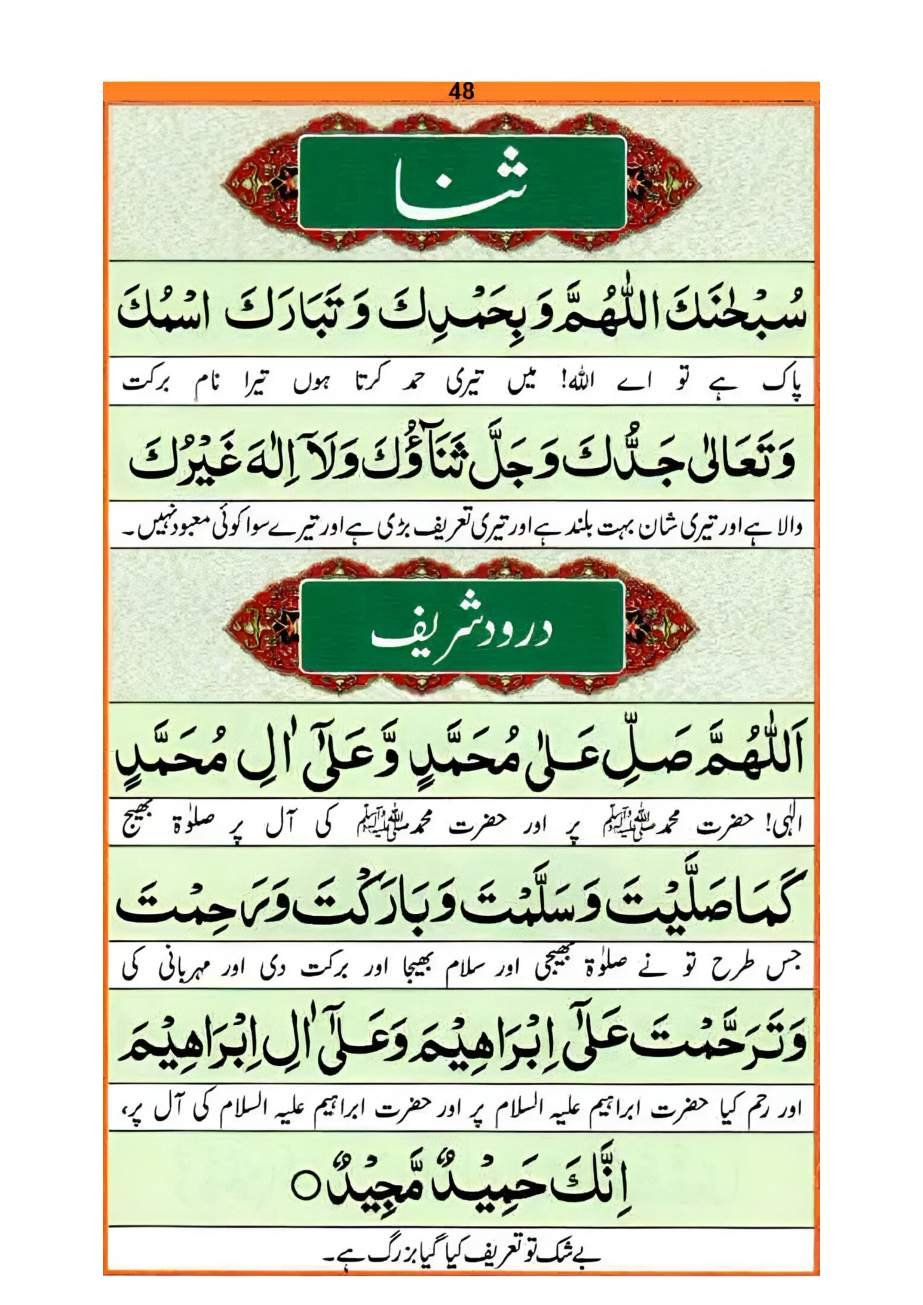 48
ثنا
سُبْحٰنَكَ اللّٰهُمَّ وَ بِحَمْدِكَ وَ تَبَارَكَ اسْمُكَ
پاک ہے تو اے اللہ! میں تیری حمد کرتا ہوں تیرا نام برکت
وَ تَعَالٰى جَدُّكَ وَ جَلَّ ثَنَآؤُكَ وَلَآ اِلٰهَ غَيْرُكَ
والا ہے اور تیری شان بہت بلند ہے اور تیری تعریف بڑی ہے اور تیرے سوا کوئی معبود نہیں۔
درود شریف
اَللّٰهُمَّ صَلِّ عَلٰى مُحَمَّدٍ وَّعَلٰٓى اٰلِ مُحَمَّدٍ
الٰہی! حضرت محمدﷺ پر اور حضرت محمدﷺ کی آل پر صلوٰۃ بھیج
كَمَا صَلَّيْتَ وَ سَلَّمْتَ وَ بَارَكْتَ وَ رَحِمْتَ
جس طرح تو نے صلوٰۃ بھیجی اور سلام بھیجا اور برکت دی اور مہربانی کی
وَ تَرَحَّمْتَ عَلٰٓى اِبْرَاهِيْمَ وَعَلٰٓى اٰلِ اِبْرَاهِيْمَ
اور رحم کیا حضرت ابراہیم علیہ السلام پر اور حضرت ابراہیم علیہ السلام کی آل پر،
اِنَّكَ حَمِيْدٌ مَّجِيْدٌ ○
بے شک تو تعریف کیا گیا بزرگ ہے۔